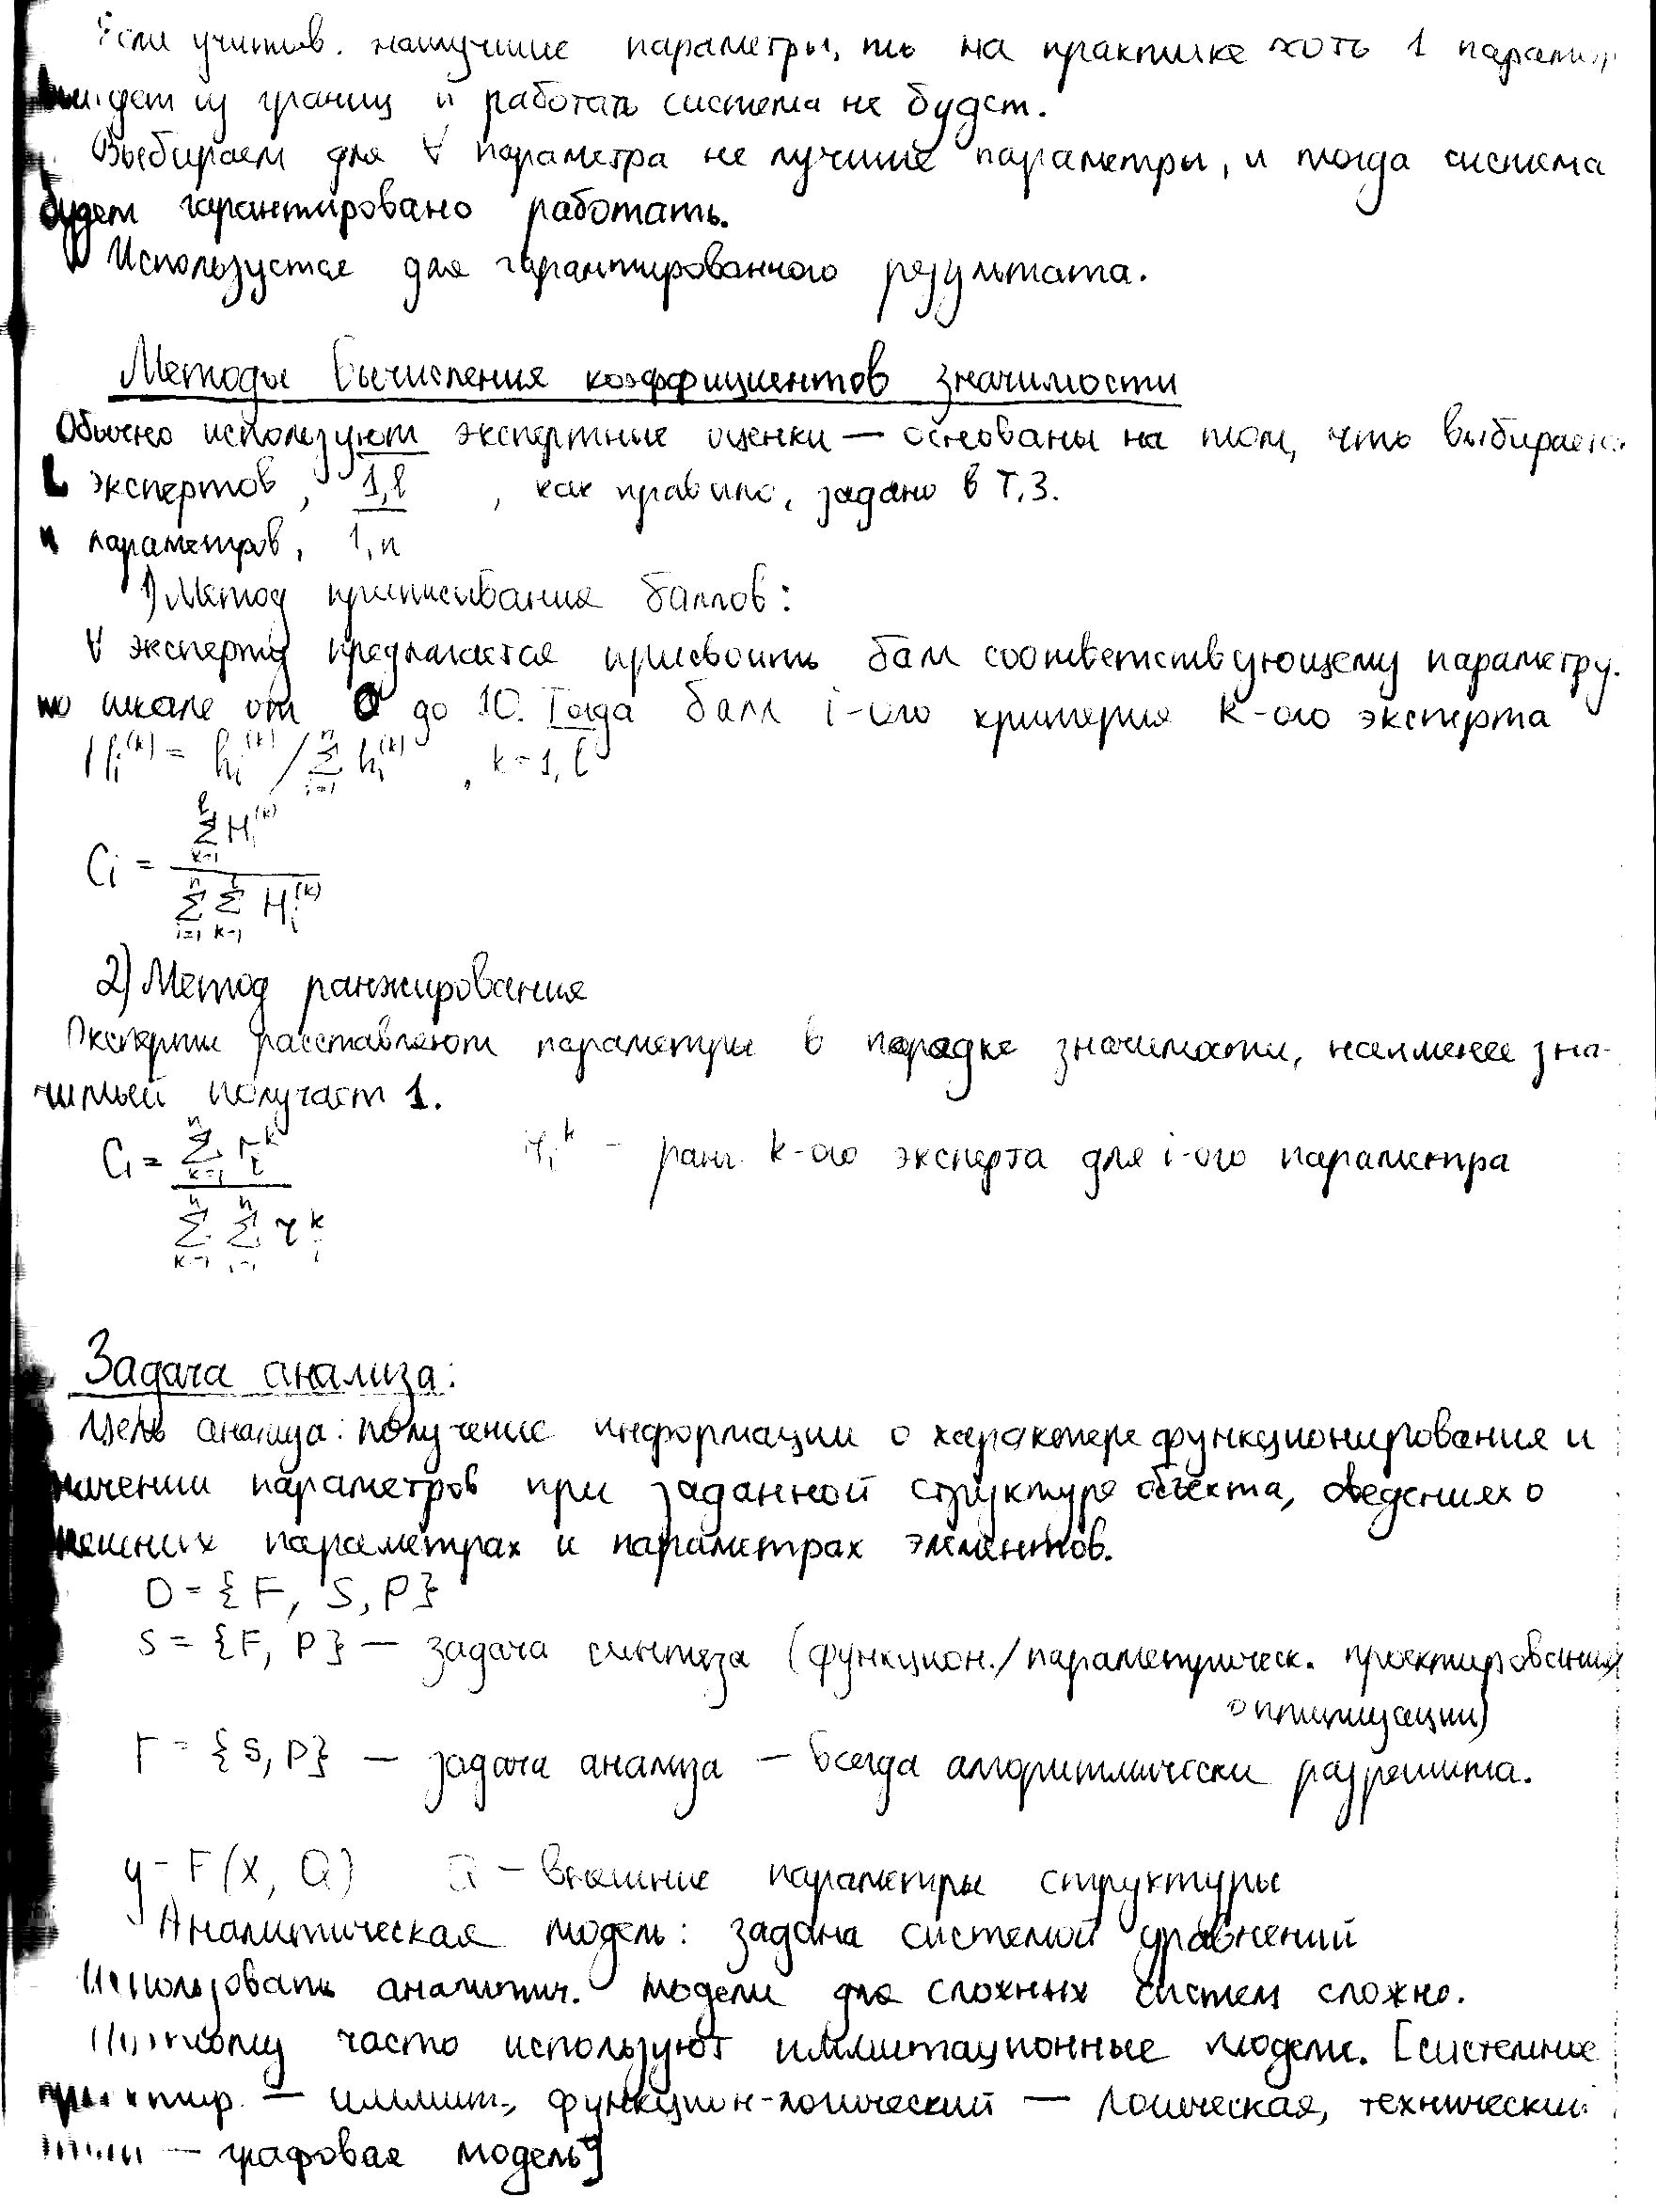 Если учитыв. наилучшие параметры, то на практике хоть 1 параметр
выйдет из границ и работать система не будет.
Выбираем для ∀ параметра не лучшие параметры, и тогда система
будет гарантировано работать.
Используется для гарантированного результата.
Методы вычисления коэффициентов значимости
Обычно используют экспертные оценки — основаны на том, что выбирается
L экспертов, 1,l , как правило, задано в Т.З.
n параметров, 1,n
1) Метод приписывания баллов:
∀ эксперту предлагается присвоить балл соответствующему параметру.
по шкале от 0 до 10. Тогда балл i-ого критерия k-ого эксперта
H_i^(k) = h_i^(k) / ∑_{i=1}^{n} h_i^(k) , k=1,l
C_i = ∑_{k=1}^{l} H_i^(k) / ∑_{i=1}^{n} ∑_{k=1}^{l} H_i^(k)
2) Метод ранжирования
Эксперты расставляют параметры в порядке значимости, наименее зна-
чимый получает 1.
C_i = ∑_{k=1}^{n} r_i^k / ∑_{k=1}^{n} ∑_{i=1}^{n} r_i^k r_i^k – ранг k-ого эксперта для i-ого параметра
Задача анализа:
Цель анализа: получение информации о характере функционирования и
значении параметров при заданной структуре объекта, сведениях о
внешних параметрах и параметрах элементов.
D = {F, S, P}
S = {F, P} — задача синтеза (функцион./параметрическ. проектирования,
оптимизации)
F = {S, P} — задача анализа — всегда алгоритмически разрешима.
y = F(X, Q) Q — внешние параметры структуры
Аналитическая модель: задана системой уравнений
Использовать аналитич. модели для сложных систем сложно.
Поэтому часто используют иммитационные модели. [системное
проектир. — иммит., функцион-логический — логическая, технический
— графовая модель]